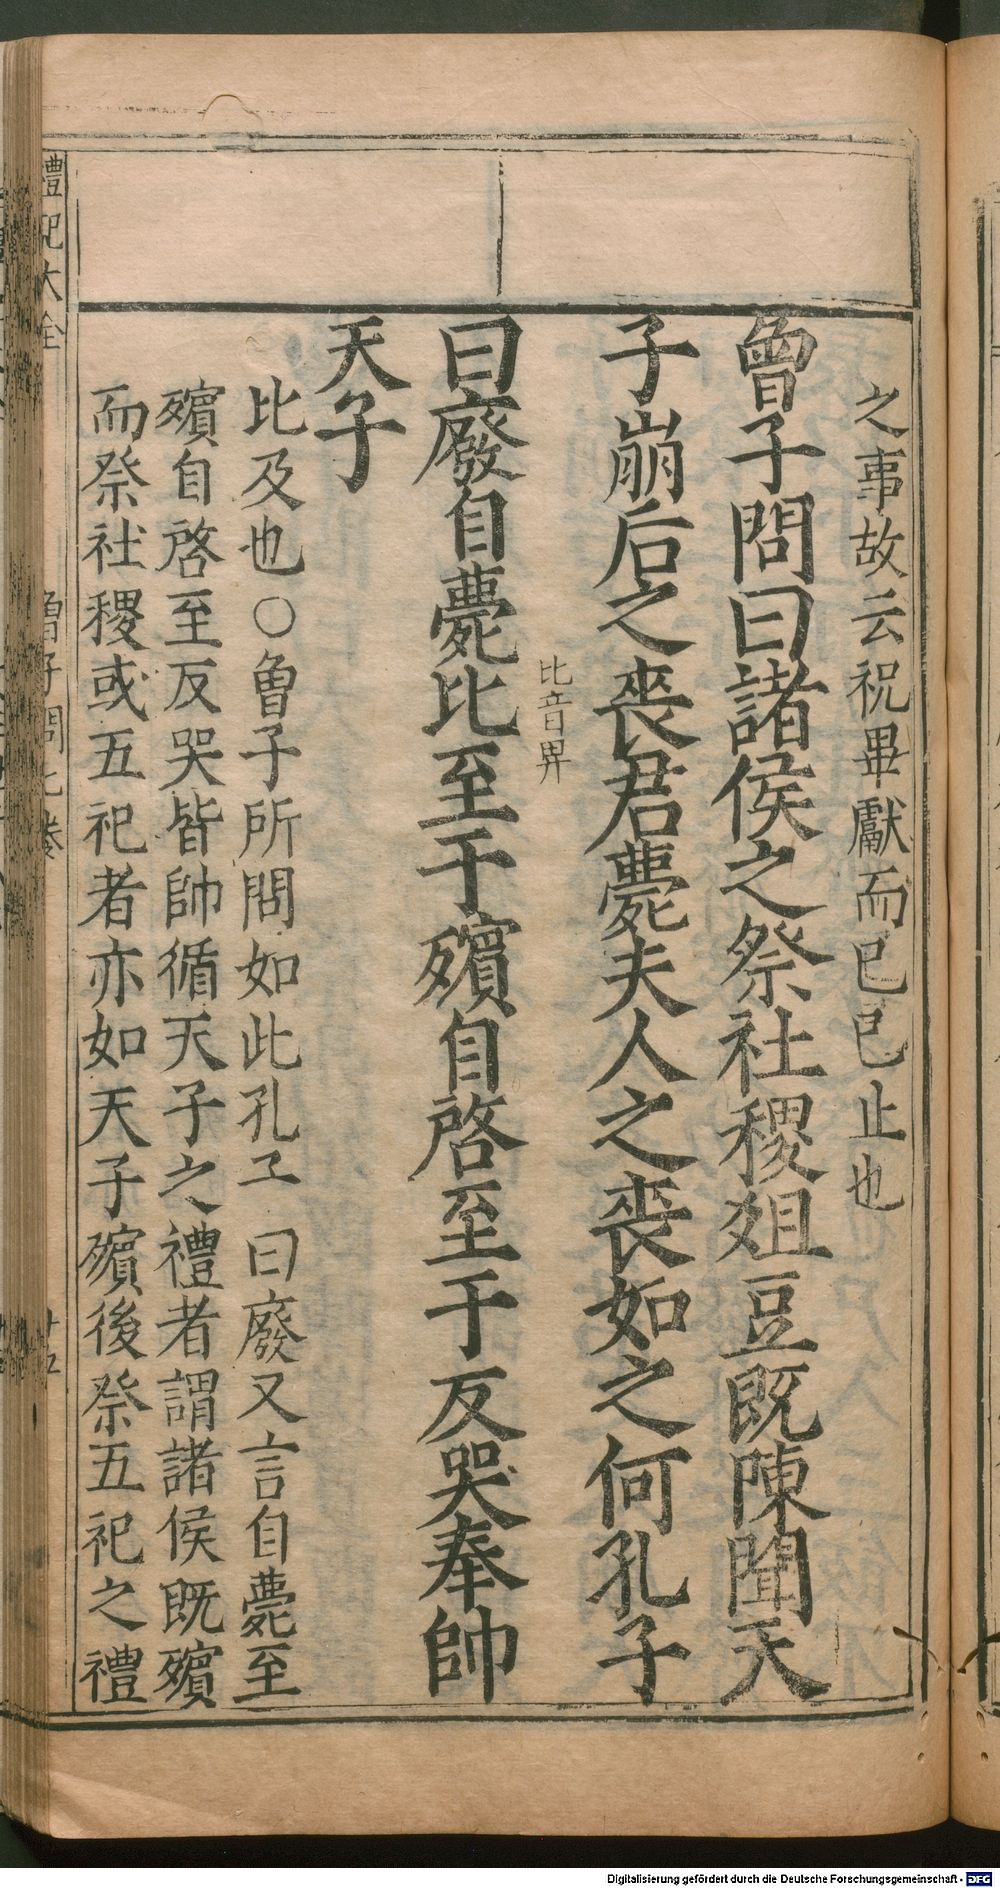 之事故云祝畢獻而已已止也
曾子問曰諸侯之祭社稷俎豆既陳聞天
子崩后之喪君薨夫人之喪如之何孔子
比音畀
曰廢自薨比至于殯自啓至于反哭奉帥
天子
比及也○曾子所問如此孔子曰廢又言自薨至
殯自啓至反哭皆帥循天子之禮者謂諸侯既殯
而祭社稷或五祀者亦如天子殯後祭五祀之禮
禮記大全
曾子問七卷
廿五
Digitalisierung gefördert durch die Deutsche Forschungsgemeinschaft - DFG